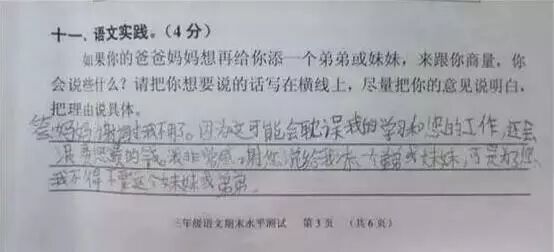 十一、语文实践。(4分)
如果你的爸爸妈妈想再给你添一个弟弟或妹妹，来跟你商量，你
会说些什么？请把你想要说的话写在横线上，尽量把你的意见说明白，
把理由说具体。
答妈妈谢谢我不用了。因为这可能会耽误我的学习和您的工作，还会
浪费您的钱。我非常感谢您说给我添一个弟弟或妹妹，可是为了您
我不得不要这个妹妹或弟弟。
三年级语文期末水平测试 第3页 (共6页)